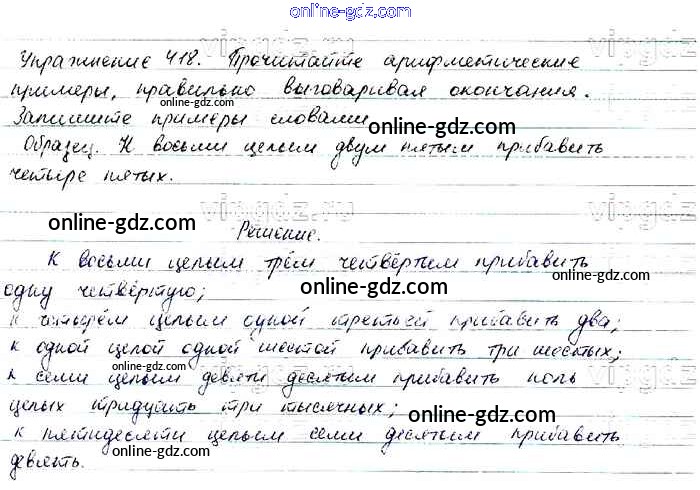 online-gdz.com
Упражнение 418. Прочитайте арифметические
примеры, правильно выговаривая окончания.
online-gdz.com
Запишите примеры словами
online-gdz.com
Образец. К восьми целым двум пятым прибавить
четыре пятых.
vipgdz.ru
online-gdz.com
Решение.
К восьми целым трём четвёртым прибавить
одну четвёртую;
online-gdz.com
online-gdz.com
к четырём целым одной третьей прибавить два;
к одной целой одной шестой прибавить три шестых;
online-gdz.com
к семи целым девяти десятым прибавить ноль
целых тридцать три тысячных;
online-gdz.com
к пятидесяти целым семи десятым прибавить
девять.
online-gdz.com